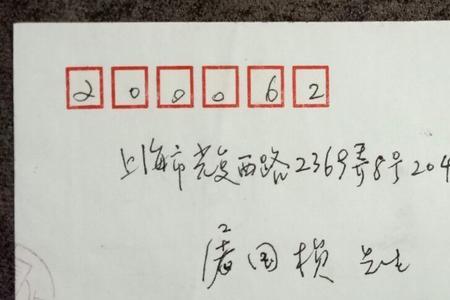 200062
上海市光复西路2369弄8号204
屠国桢 先生